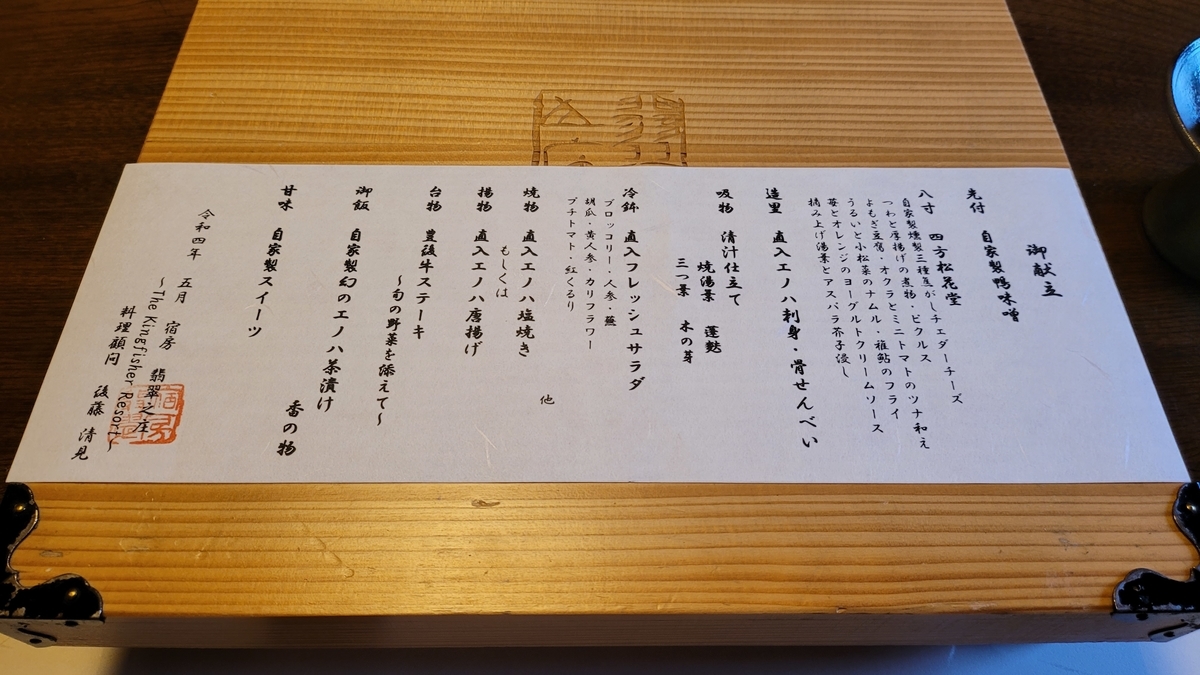 御献立
先付　自家製鴨味噌
八寸　四方松花堂
自家製燻製三種焦がしチェダーチーズ
つわと厚揚げの煮物・ピクルス
よもぎ豆腐・オクラとミニトマトのツナ和え
うるいと小松菜のナムル・稚鮎のフライ
苺とオレンジのヨーグルトクリームソース
摘み上げ湯葉とアスパラ芥子浸し
造里　直入エノハ刺身・骨せんべい
吸物　清汁仕立て
焼湯葉　蓬麩
三つ葉　木の芽
冷鉢　直入フレッシュサラダ
ブロッコリー・人参・蕪
胡瓜・黄人参・カリフラワー
プチトマト・紅くるり
他
焼物　直入エノハ塩焼き
もしくは
揚物　直入エノハ唐揚げ
台物　豊後牛ステーキ
～旬の野菜を添えて～
御飯　自家製幻のエノハ茶漬け
香の物
甘味　自家製スイーツ
令和四年　五月　宿房　翡翠之庄
～The Kingfisher Resort～
料理顧問　後藤　清見